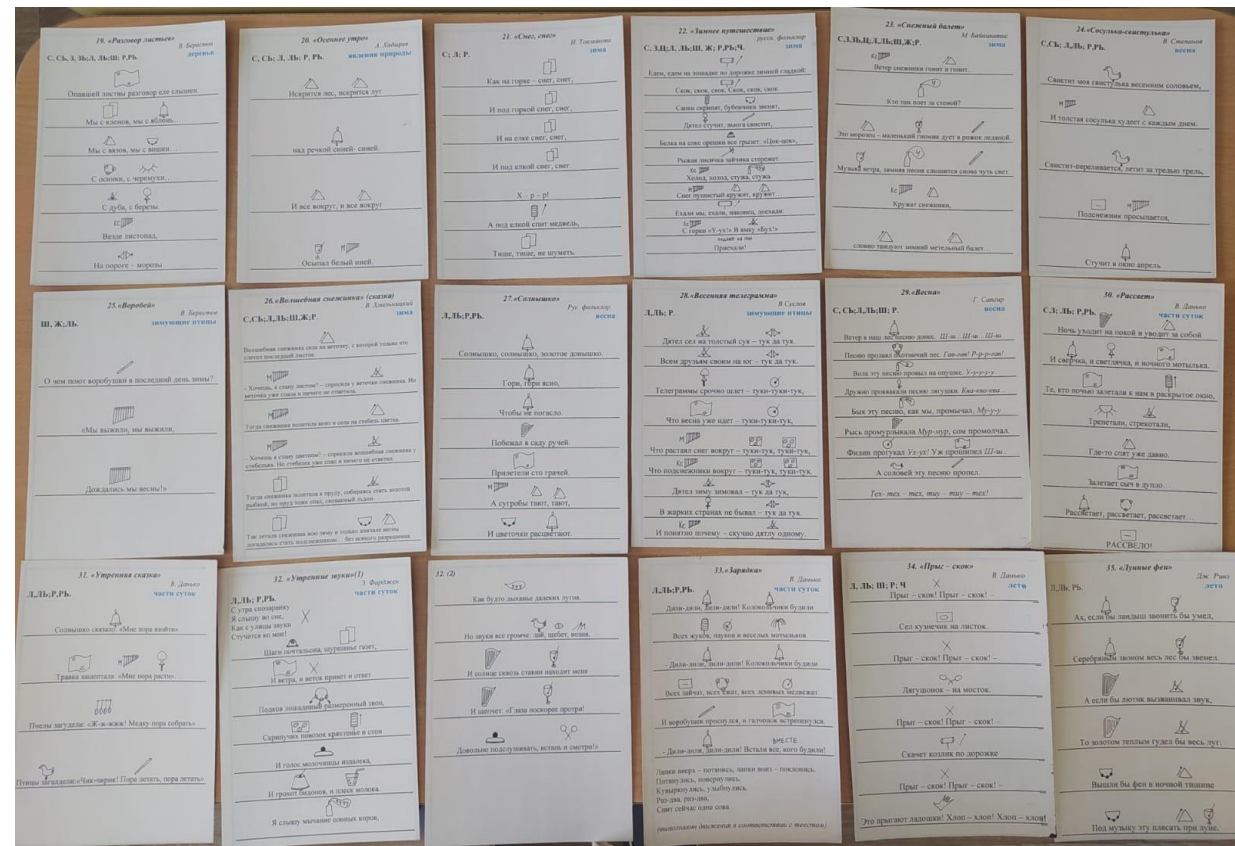 19. «Разговор листьев»
В. Берестов
деревья
С, СЬ, З, ЗЬ;Л, ЛЬ;Ш; Р,РЬ.
Опавшей листвы разговор еле слышен.
Мы с кленов, мы с яблонь...
Мы с вязов, мы с вишен...
С осинки, с черемухи...
С дуба, с березы.
Кс
Везде листопад,
На пороге – морозы
20. «Осеннее утро»
А. Ходырев
явления природы
С, СЬ; Л, ЛЬ; Р, РЬ.
Искрится лес, искрится луг
над речкой синей- синей.
И все вокруг, и все вокруг
М
Осыпал белый иней.
21. «Снег, снег»
И. Токмакова
зима
С; Л; Р.
Как на горке – снег, снег,
И под горкой снег, снег,
И на елке снег, снег,
И под елкой снег, снег.
Х – р – р!
А под елкой спит медведь,
Тише, тише, не шуметь.
22. «Зимнее путешествие»
русск. фольклор
зима
С, З,Ц;Л, ЛЬ;Ш, Ж; Р,РЬ;Ч.
Едем, едем на лошадке по дорожке зимней гладкой:
Скок, скок, скок. Скок, скок, скок.
Санки скрипят, бубенчики звенят,
Дятел стучит, вьюга свистит,
Белка на елке орешки все грызет: «Цок-цок»,
Рыжая лисичка зайчика стережет.
Кс
Холод, холод, стужа, стужа
М
Снег пушистый кружит, кружит...
Ехали мы, ехали, наконец, доехали.
С горки «У-ух!» В ямку «Бух!»
Приехали!
23. «Снежный балет»
зима
С,З,ЗЬ,Ц;Л,ЛЬ;Ш,Ж;Р.
Кс
Ветер снежинки гонит и гонит...
Кто там поет за стеной?
Это морозец – маленький гномик дует в рожок ледяной.
Музыка ветра, зимняя песня слышится снова чуть свет.
Кс
Кружат снежинки,
словно танцуют зимний метельный балет...
24.«Сосулька-свистулька»
В. Степанов
весна
С,СЬ; Л,ЛЬ; Р,РЬ.
Свистит моя свистулька весенним соловьем,
М
И толстая сосулька худеет с каждым днем.
Свистит-переливается, летит за трелью трель,
М
Подснежник просыпается,
Стучит в окно апрель.
25.«Воробей»
В. Берестов
зимующие птицы
Ш, Ж;ЛЬ.
О чем поют воробушки в последний день зимы?
«Мы выжили, мы выжили,
Дождались мы весны!»
26.«Волшебная снежинка» (сказка)
В. Хмельницкий
зима
С,СЬ;Л,ЛЬ;Ш,Ж;Р.
Волшебная снежинка села на веточку, с которой только что слетел последний листок.
М
- Хочешь, я стану листом? – спросила у веточки снежинка. Но веточка уже спала и ничего не ответила.
М
Тогда снежинка полетела вниз и села на стебель цветка.
М
- Хочешь я стану цветком? – спросила волшебная снежинка у стебелька. Но стебелек уже спал и ничего не ответил.
Тогда снежинка полетела к пруду, собираясь стать золотой рыбкой, но пруд тоже спал, скованный льдом.
Так летала снежинка всю зиму и только вначале весны догадалась стать подснежником... без всякого разрешения
27.«Солнышко»
Рус. фольклор
весна
Л,ЛЬ;Р,РЬ.
Солнышко, солнышко, золотое донышко.
Гори, гори ясно,
Чтобы не погасло.
Побежал в саду ручей.
Прилетели сто грачей.
М
А сугробы тают, тают,
И цветочки расцветают.
28.«Весенняя телеграмма»
В Суслов
зимующие птицы
Л,ЛЬ; Р.
Дятел сел на толстый сук – тук да тук.
Всем друзьям своим на юг – тук да тук.
Телеграммы срочно шлет – туки-туки-тук,
Что весна уже идет – туки-туки-тук,
М
Что растаял снег вокруг – туки-тук, туки-тук,
Кс
Что подснежники вокруг – туки-тук, туки-тук.
Дятел зиму зимовал – тук да тук,
В жарких странах не бывал – тук да тук.
Кс
И понятно почему – скучно дятлу одному.
29.«Весна»
Г. Сапгир
весна
С, СЬ;Л,ЛЬ;Ш; Р.
Ветер в наш лес песню донес. Ш-ш... Ш-ш... Ш-ш
Песню пролаял охотничий пес. Гав-гав! Р-р-р-гав!
Волк эту песню провыл на опушке. У-у-у-у-у
Дружно проквакали песню лягушки. Ква-ква-ква...
Бык эту песню, как мы, промычал, Му-у-у
Рысь промурлыкала Мур-мур, сом промолчал.
Филин прогукал Ух-ух! Уж прошипел Ш-ш...
А соловей эту песню пропел.
Тех- тех – тех, тиу – тиу – тех!
30. «Рассвет»
В. Данько
части суток
С,З; ЛЬ; Р,РЬ.
Ночь уходит на покой и уводит за собой
И сверчка, и светлячка, и ночного мотылька.
Те, кто ночью залетали к нам в раскрытое окно,
Трепетали, стрекотали,
Где-то спят уже давно.
Залетает сыч в дупло...
Рассветает, рассветает, рассветает...
РАССВЕЛО!
31. «Утренняя сказка»
В. Данько
части суток
Л,ЛЬ;Р,РЬ.
Солнышко сказало: «Мне пора взойти».
М
Травка зашептала: «Мне пора расти».
Пчелы загудели: «Ж-ж-жжж! Медку пора собрать»
Птицы загалдели:«Чик-чирик! Пора летать, пора летать»
32. «Утренние звуки»(1)
части суток
Л,ЛЬ; Р,РЬ.
С утра спозаранку
Я слышу во сне,
Как с улицы звуки
Стучатся ко мне!
Шаги почтальона, шуршанье газет,
И ветра, и веток привет и ответ
Подков лошадиный размеренный звон,
Скрипучих повозок кряхтенье и стон
И голос молочницы издалека,
И грохот бидонов, и плеск молока.
Я слышу мычание сонных коров,
32. (2)
Как будто дыханье далеких лугов.
Но звуки все громче: лай, щебет, возня,
И солнце сквозь ставни находит меня
И шепчет: «Глаза поскорее протри!
Довольно подслушивать, встань и смотри!»
33.«Зарядка»
В. Данько
части суток
Л,ЛЬ;Р,РЬ.
Дили-дили, дили-дили! Колокольчики будили
Всех жуков, пауков и веселых мотыльков.
- Дили-дили, дили-дили! Колокольчики будили
Всех зайчат, всех ежат, всех ленивых медвежат.
И воробушек проснулся, и галчонок встрепенулся.
ВМЕСТЕ
- Дили-дили, дили-дили! Встали все, кого будили!
Лапки вверх – потянись, лапки вниз – поклонись.
Потянулись, повернулись,
Кувыркнулись, улыбнулись.
Раз-два, раз-два,
Спит сейчас одна сова.
(выполняют движения в соответствии с текстом)
34. «Прыг – скок»
В. Данько
лето
Л, ЛЬ; Ш; Р; Ч
Прыг – скок! Прыг – скок! –
Сел кузнечик на листок.
Прыг – скок! Прыг – скок! –
Лягушонок – на мосток.
Прыг – скок! Прыг – скок! –
Скачет козлик по дорожке
Прыг – скок! Прыг – скок! –
Это прыгают ладошки! Хлоп – хлоп! Хлоп – хлоп!
35. «Лунные феи»
Дж. Ривз
лето
Л,ЛЬ; РЬ.
Ах, если бы ландыш звонить бы умел,
Серебряным звоном весь лес бы звенел.
А если бы лютик вызванивал звук,
То золотом теплым гудел бы весь луг.
Вышли бы феи в ночной тишине
Под музыку эту плясать при луне.